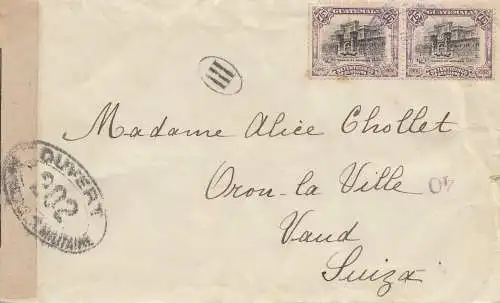 GUATEMALA GUATEMALA
75 75 75 75
Madame Alice Chollet
Oron-la Ville
Vaud
Suiza
40
OUVERT
302
MILITAIRE